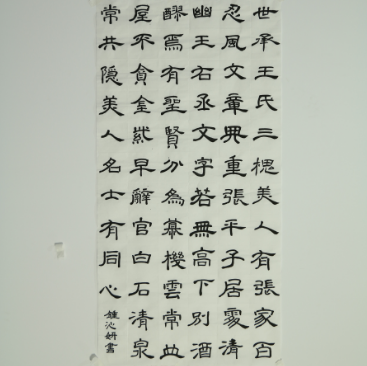 世承王氏三槐美人有張家百
忍風文章典重張平子居處清
幽王右丞文字若無高下別酒
醪焉有聖賢分為機雲常並
屋不貪金紫早辭官白石清泉
常共隱美人名士有同心
沁妍書